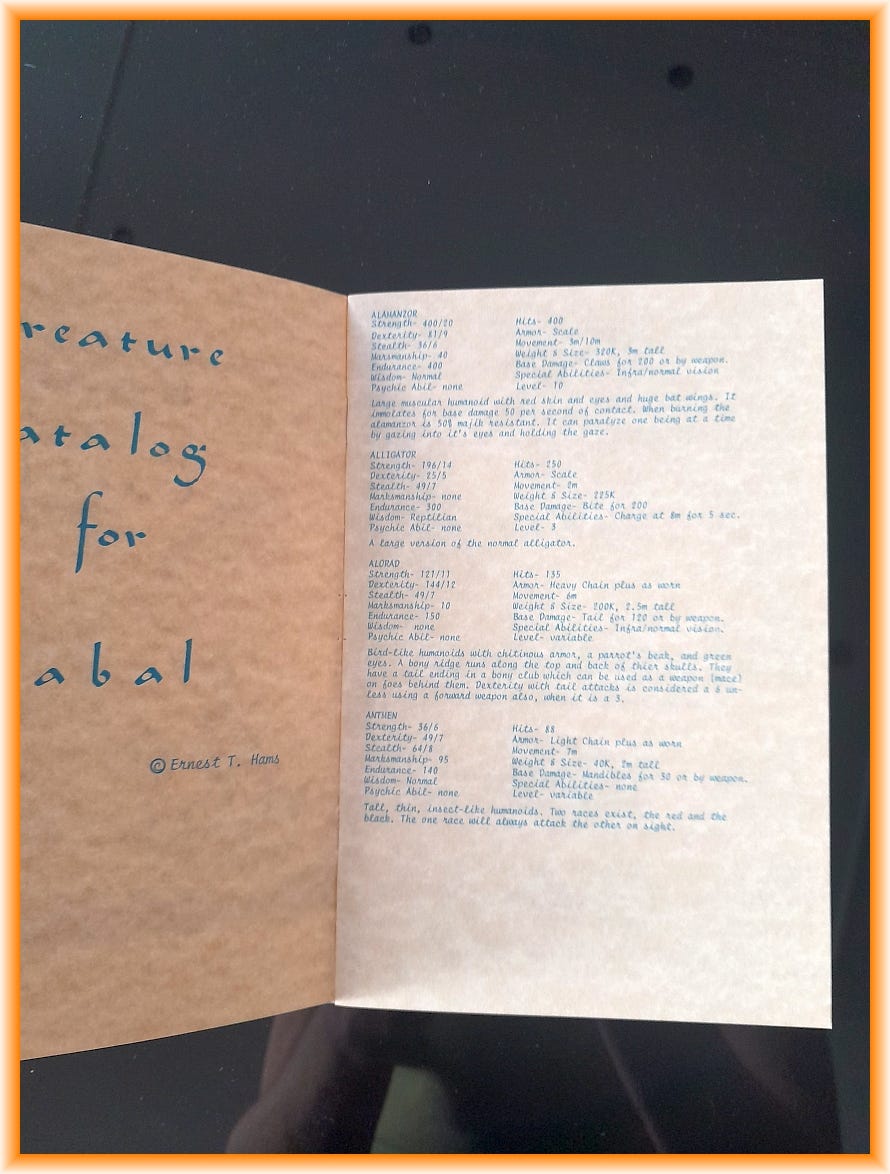 reature
atalog
for
abal
© Ernest T. Hams
ALAMANZOR
Strength- 400/20 Hits- 400
Dexterity- 81/9 Armor- Scale
Stealth- 36/6 Movement- 3m/10m
Marksmanship- 40 Weight & Size- 320K, 3m tall
Endurance- 400 Base Damage- Claws for 200 or by weapon.
Wisdom- Normal Special Abilities- Infra/normal vision
Psychic Abil- none Level- 10
Large muscular humanoid with red skin and eyes and huge bat wings. It
immolates for base damage 50 per second of contact. When burning the
alamanzor is 50% majik resistant. It can paralyze one being at a time
by gazing into it's eyes and holding the gaze.
ALLIGATOR
Strength- 196/14 Hits- 250
Dexterity- 25/5 Armor- Scale
Stealth- 49/7 Movement- 2m
Marksmanship- none Weight & Size- 225K
Endurance- 300 Base Damage- Bite for 200
Wisdom- Reptilian Special Abilities- Charge at 8m for 5 sec.
Psychic Abil- none Level- 3
A large version of the normal alligator.
ALORAD
Strength- 121/11 Hits- 135
Dexterity- 144/12 Armor- Heavy Chain plus as worn
Stealth- 49/7 Movement- 6m
Marksmanship- 10 Weight & Size- 200K, 2.5m tall
Endurance- 150 Base Damage- Tail for 120 or by weapon.
Wisdom- none Special Abilities- Infra/normal vision.
Psychic Abil- none Level- variable
Bird-like humanoids with chitinous armor, a parrot's beak, and green
eyes. A bony ridge runs along the top and back of thier skulls. They
have a tail ending in a bony club which can be used as a weapon (mace)
on foes behind them. Dexterity with tail attacks is considered a 6 un-
less using a forward weapon also, when it is a 3.
ANTMEN
Strength- 36/6 Hits- 88
Dexterity- 49/7 Armor- Light Chain plus as worn
Stealth- 64/8 Movement- 7m
Marksmanship- 95 Weight & Size- 40K, 2m tall
Endurance- 140 Base Damage- Mandibles for 30 or by weapon.
Wisdom- Normal Special Abilities- none
Psychic Abil- none Level- variable
Tall, thin, insect-like humanoids. Two races exist, the red and the
black. The one race will always attack the other on sight.